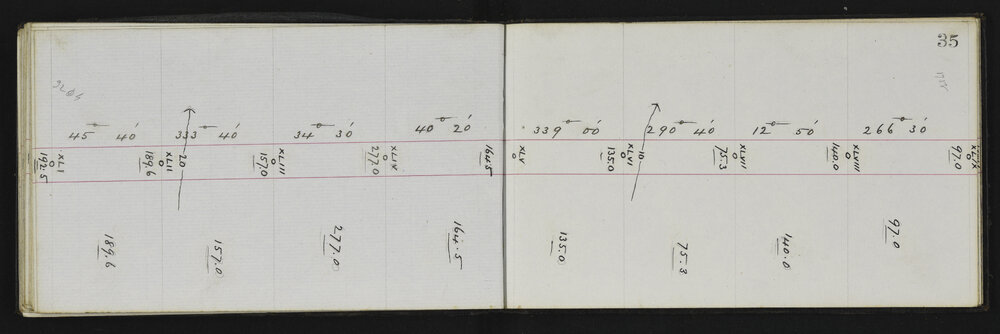 35
45 40'
333 40'
34 30'
40 20'
339 00'
290 40'
12 50'
266 30'
XLI
192.5
XLII
189.6
20
XLIII
157.0
XLIV
277.0
164.5
XLV
XLVI
135.0
10
XLVII
75.3
XLVIII
140.0
XLIX
97.0
189.6
157.0
277.0
164.5
135.0
75.3
140.0
97.0